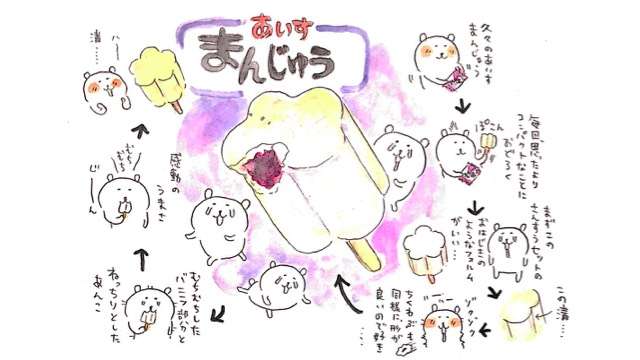 あいす
まんじゅう
久々のあいす
まんじゅう
毎回思ったより
コンパクトなことに
おどろく
ぽこん
まずこの
さんすうセットの
おはじきの
ようなフォルム
がいい…
この溝…
ゾクゾク
ちくわぶも
同様に形が
良いので好き
むちむちした
バニラ部分と
ねっちりとした
あんこ
むち
むち
じーん
感動の
うまさ
ハー
溝……